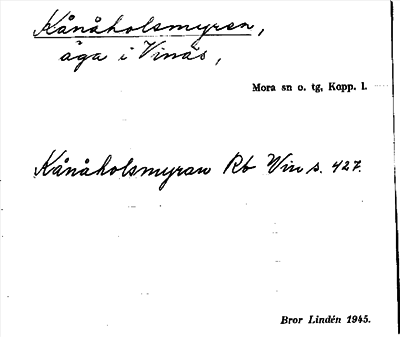 Kånåholsmyren,
äga i Vinäs,
Mora sn o. tg, Kopp. l.
Kånåholsmyran Rb Vin s. 427.
Bror Lindén 1945.